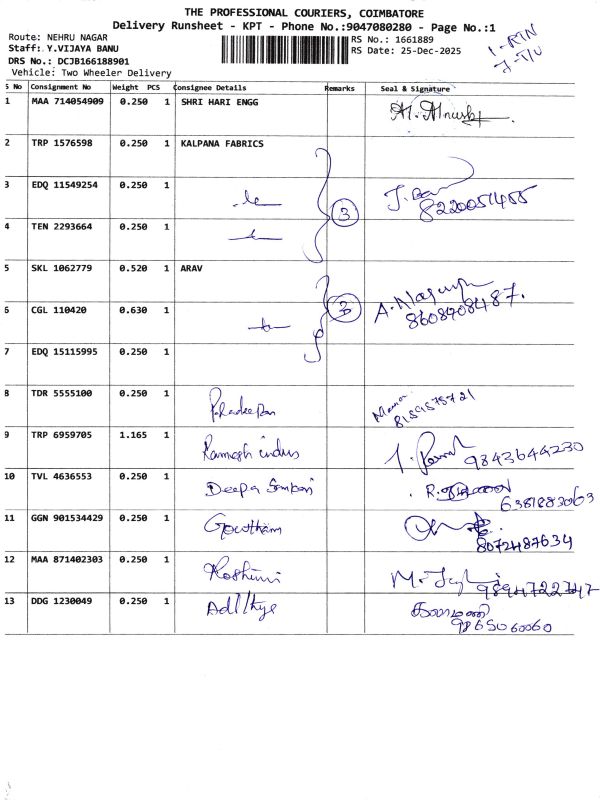 THE PROFESSIONAL COURIERS, COIMBATORE
Delivery Runsheet - KPT - Phone No.:9047080280 - Page No.:1
Route: NEHRU NAGAR
RS No.: 1661889
Staff: Y.VIJAYA BANU
RS Date: 25-Dec-2025
DRS No.: DCJB166188901
Vehicle: Two Wheeler Delivery
1-RTN
S No Consignment No Weight PCS Consignee Details Remarks Seal & Signature
1 MAA 714054909 0.250 1 SHRI HARI ENGG
2 TRP 1576598 0.250 1 KALPANA FABRICS
3 EDQ 11549254 0.250 1 3 8220051455
4 TEN 2293664 0.250 1
5 SKL 1062779 0.520 1 ARAV
6 CGL 110420 0.630 1 3 8608908487.
7 EDQ 15115995 0.250 1
8 TDR 5555100 0.250 1 Pradeepan
9 TRP 6959705 1.165 1 Ramesh indus 9843644230
10 TVL 4636553 0.250 1 Deepa 6381883063
11 GGN 901534429 0.250 1 Gowtham 8072487634
12 MAA 871402303 0.250 1 Roshini 9894722747
13 DDG 1230049 0.250 1 கலாமணி
9865060060